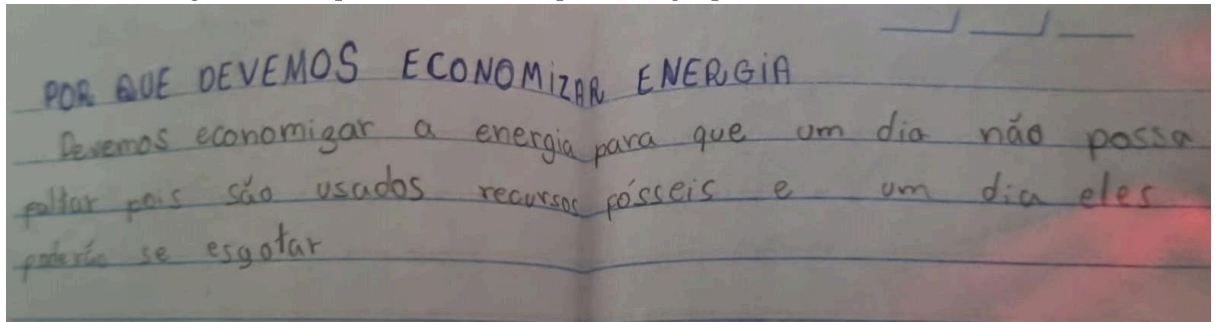 POR QUE DEVEMOS ECONOMIZAR ENERGIA
Devemos economizar a energia para que um dia não possa
faltar pois são usados recursos fósseis e um dia eles
poderão se esgotar